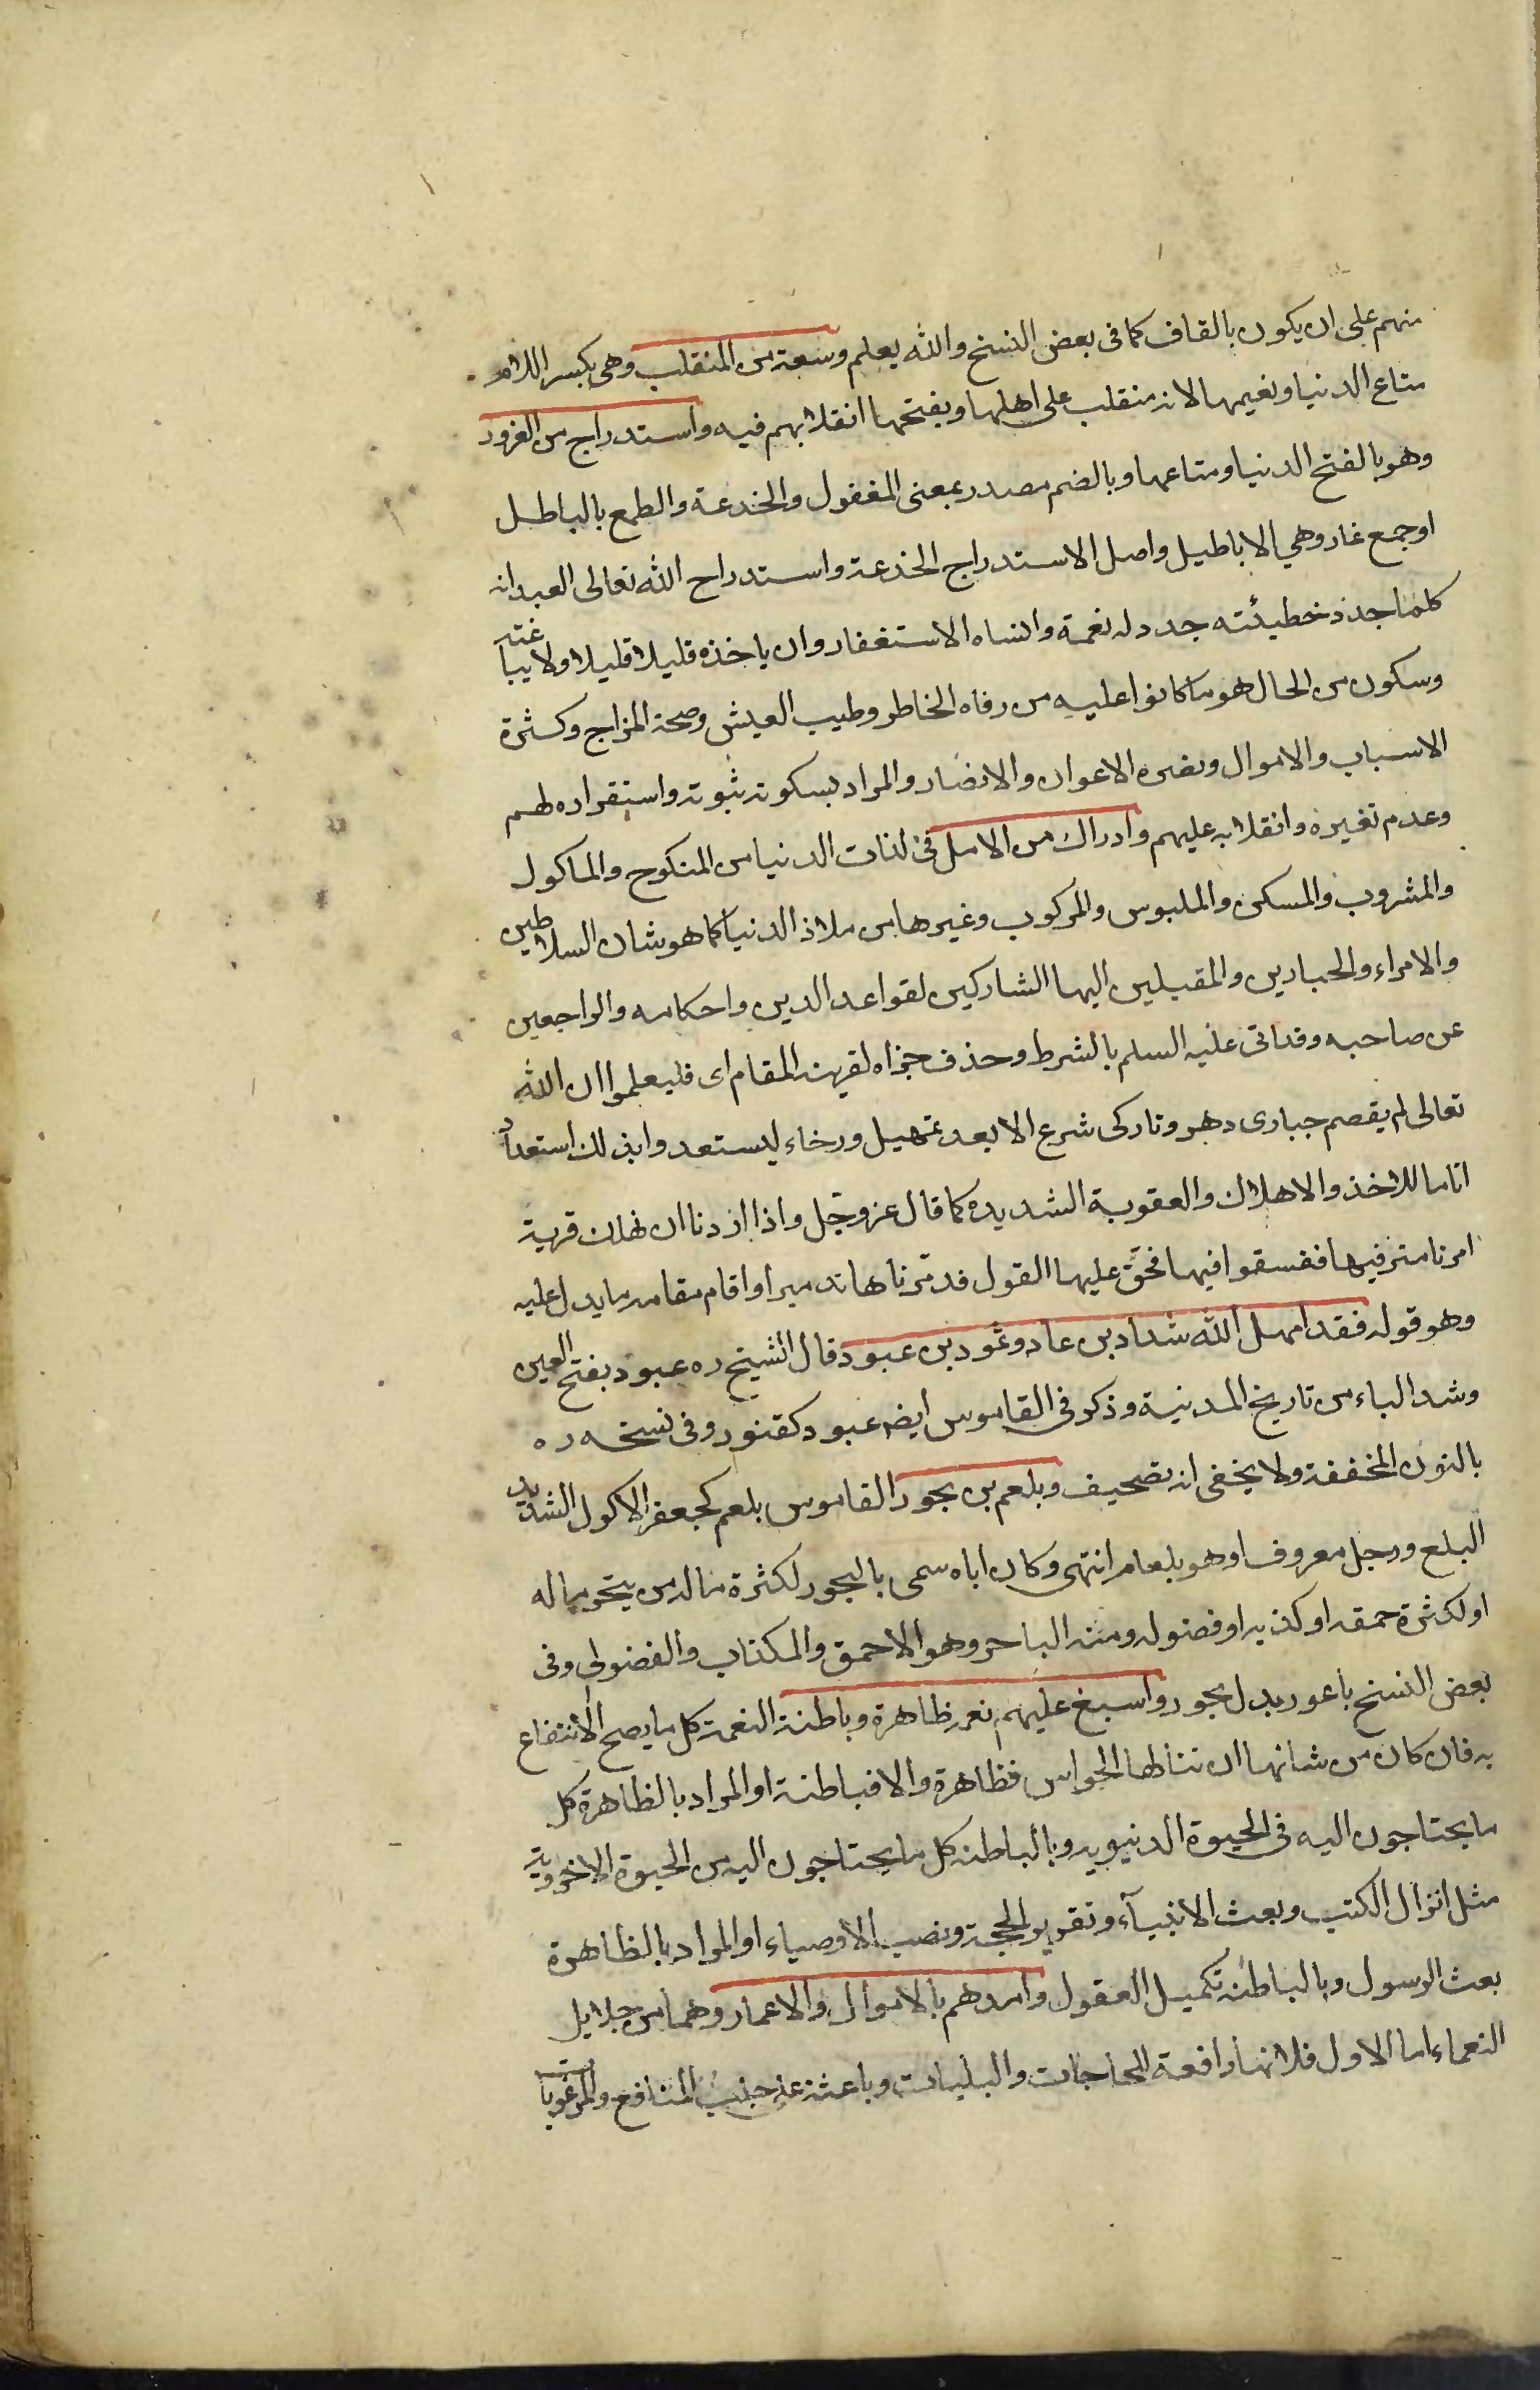 منهم على ان يكون بالقاف كما فى بعض النسخ والله يعلم وسعة من المنقلب وهى بكسر اللام
متاع الدنيا ونعيمها لانه منقلب على اهلها وبفتحها انقلابهم فيه واستدراج من الغرور
وهو بالفتح الدنيا ومتاعها وبالضم مصدر بمعنى المغفول والخدعة والطمع بالباطل
او جمع غار وهي الاباطيل واصل الاستدراج الخدعة واستدراج الله تعالى العبد انه
كلما جدد خطيئته جدد له نعمة وانساه الاستغفار وان ياخذه قليلا قليلا ولا يباغته
وسكون من الحال هو ما كانوا عليه من رفاه الخاطر وطيب العيش وصحة المزاج وكثرة
الاسباب والاموال ونضرة الاعوان والانصار والمراد بسكونه ثبوته واستقراره لهم
وعدم تغيره وانقلابه عليهم وادراك من الامل فى لذات الدنيا من المنكوح والماكول
والمشروب والمسكن والملبوس والمركوب وغيرها من ملاذ الدنيا كما هو شان السلاطين
والامراء والجبارين والمقبلين اليها التاركين لقواعد الدين واحكامه والراجعين
عن صاحبه وقد اتى عليه السلم بالشرط وحذف جزاه لقرينة المقام اى فليعلموا ان الله
تعالى لم يقصم جبارى دهر وتاركى شرع الا بعد تمهيل ورخاء ليستعدوا بذلك استعدادا
تاما للاخذ والاهلاك والعقوبة الشديدة كما قال عز وجّل واذا اردنا ان نهلك قرية
امرنا مترفيها ففسقوا فيها فحقّ عليها القول فدمّرناها تدميرا واقام مقامه ما يدل عليه
وهو قوله فقد امهل الله شداد بن عاد وثمود بن عبود قال الشيخ ره عبود بفتح العين
وشد الباء من تاريخ المدنية وذكر فى القاموس ايضا عبود كتنور وفى نسخه ره
بالنون المخففة ولا يخفى انه تصحيف وبلعم بن بجور القاموس بلعم كجعفر الاكول الشديد
البلع ورجل معروف او هو بلعام انتهى وكان اباه سمى بالبجور لكثرة ماله من يبجر ماله
او لكثرة حمقه او كذبه او فضوله ومنه الباجر وهو الاحمق والمكذاب والفضولى وفى
بعض النسخ باعور بدل بجور واسبغ عليهم نعمه ظاهرة وباطنة النعمة كل ما يصح الانتفاع
به فان كان من شانها ان تنالها الحواس فظاهرة والا فباطنة او المراد بالظاهرة كل
ما يحتاجون اليه فى الحيوة الدنيويه وبالباطنه كل ما يحتاجون اليه من الحيوة الاخروية
مثل انزال الكتب وبعث الانبيآء وتقرير الحجة ونصب الاوصياء او المراد بالظاهرة
بعث الرسول وبالباطنه تكميل العقول وامدهم بالاموال والاعمار وهما من جلايل
النعماء اما الاول فلانها دافعة للحاجات والبليات وباعثة على جذب المنافع والمرغوبات